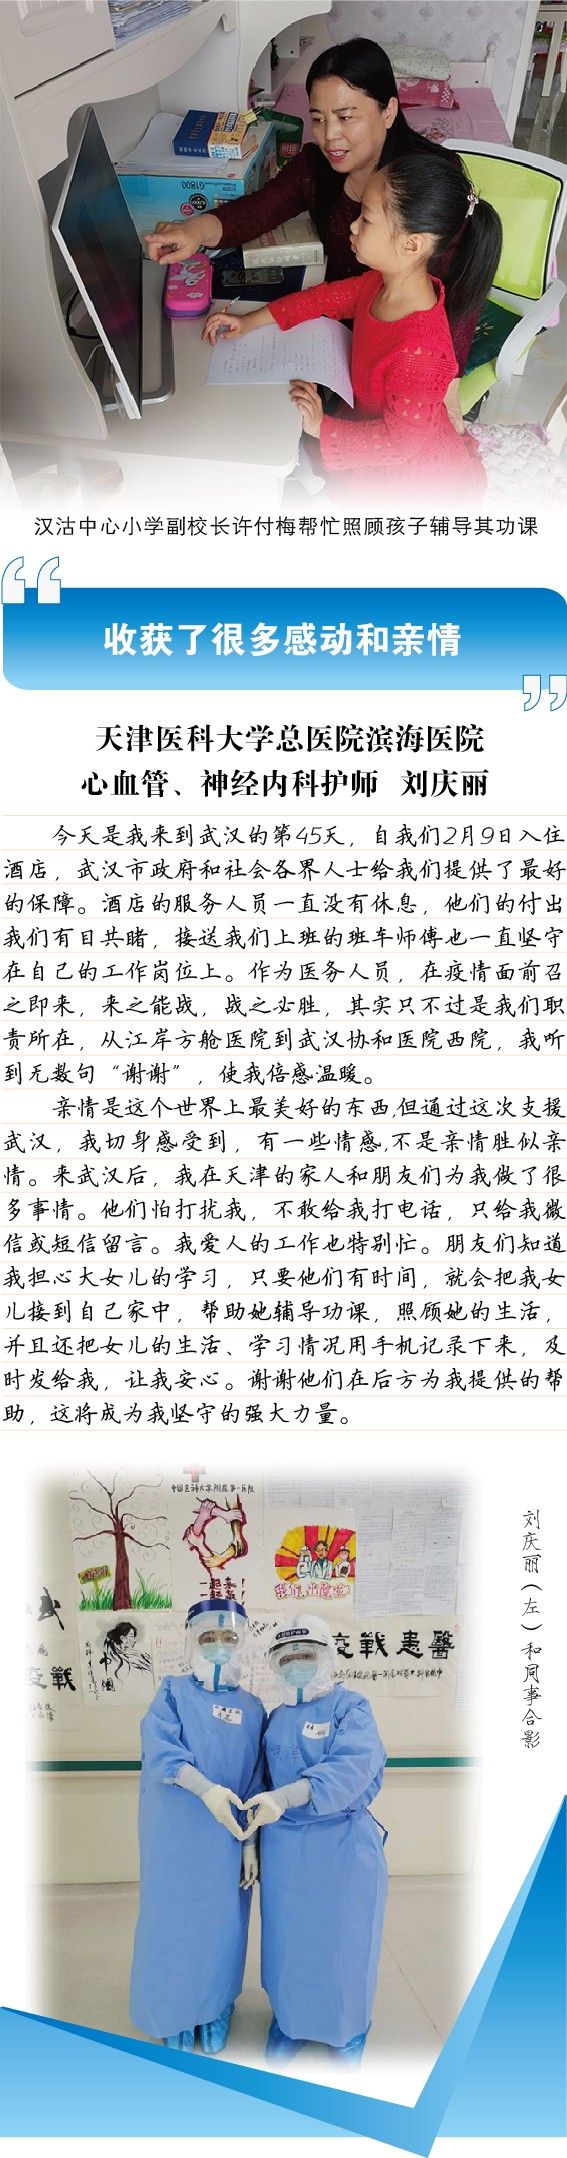 G1800
汉沽中心小学副校长许付梅帮忙照顾孩子辅导其功课
“
收获了很多感动和亲情
”
天津医科大学总医院滨海医院
心血管、神经内科护师 刘庆丽
今天是我来到武汉的第45天，自我们2月9日入住
酒店，武汉市政府和社会各界人士给我们提供了最好
的保障。酒店的服务人员一直没有休息，他们的付出
我们有目共睹，接送我们上班的班车师傅也一直坚守
在自己的工作岗位上。作为医务人员，在疫情面前召
之即来，来之能战，战之必胜，其实只不过是我们职
责所在，从江岸方舱医院到武汉协和医院西院，我听
到无数句“谢谢”，使我倍感温暖。
亲情是这个世界上最美好的东西,但通过这次支援
武汉，我切身感受到，有一些情感,不是亲情胜似亲
情。来武汉后，我在天津的家人和朋友们为我做了很
多事情。他们怕打扰我，不敢给我打电话，只给我微
信或短信留言。我爱人的工作也特别忙。朋友们知道
我担心大女儿的学习，只要他们有时间，就会把我女
儿接到自己家中，帮助她辅导功课，照顾她的生活，
并且还把女儿的生活、学习情况用手机记录下来，及
时发给我，让我安心。谢谢他们在后方为我提供的帮
助，这将成为我坚守的强大力量。
中国医科大学附属第一医院
一起来
我们出院啦
疫戰患醫
疫戰
中國
天津
刘庆丽（左）和同事合影